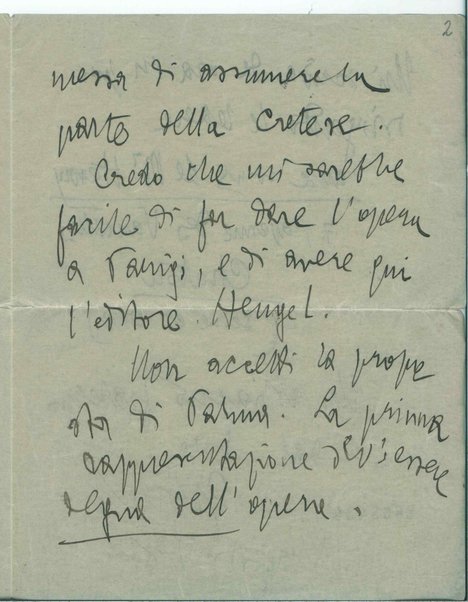 2
messa di assumere la
parte della cretese.
Credo che mi sarebbe
facile di far dare l'opera
a Parigi, e di avere qui
l'editore Heugel.
Non accetti la propo
sta di Parma. La prima
rappresentazione dev'essere
degna dell'opera.